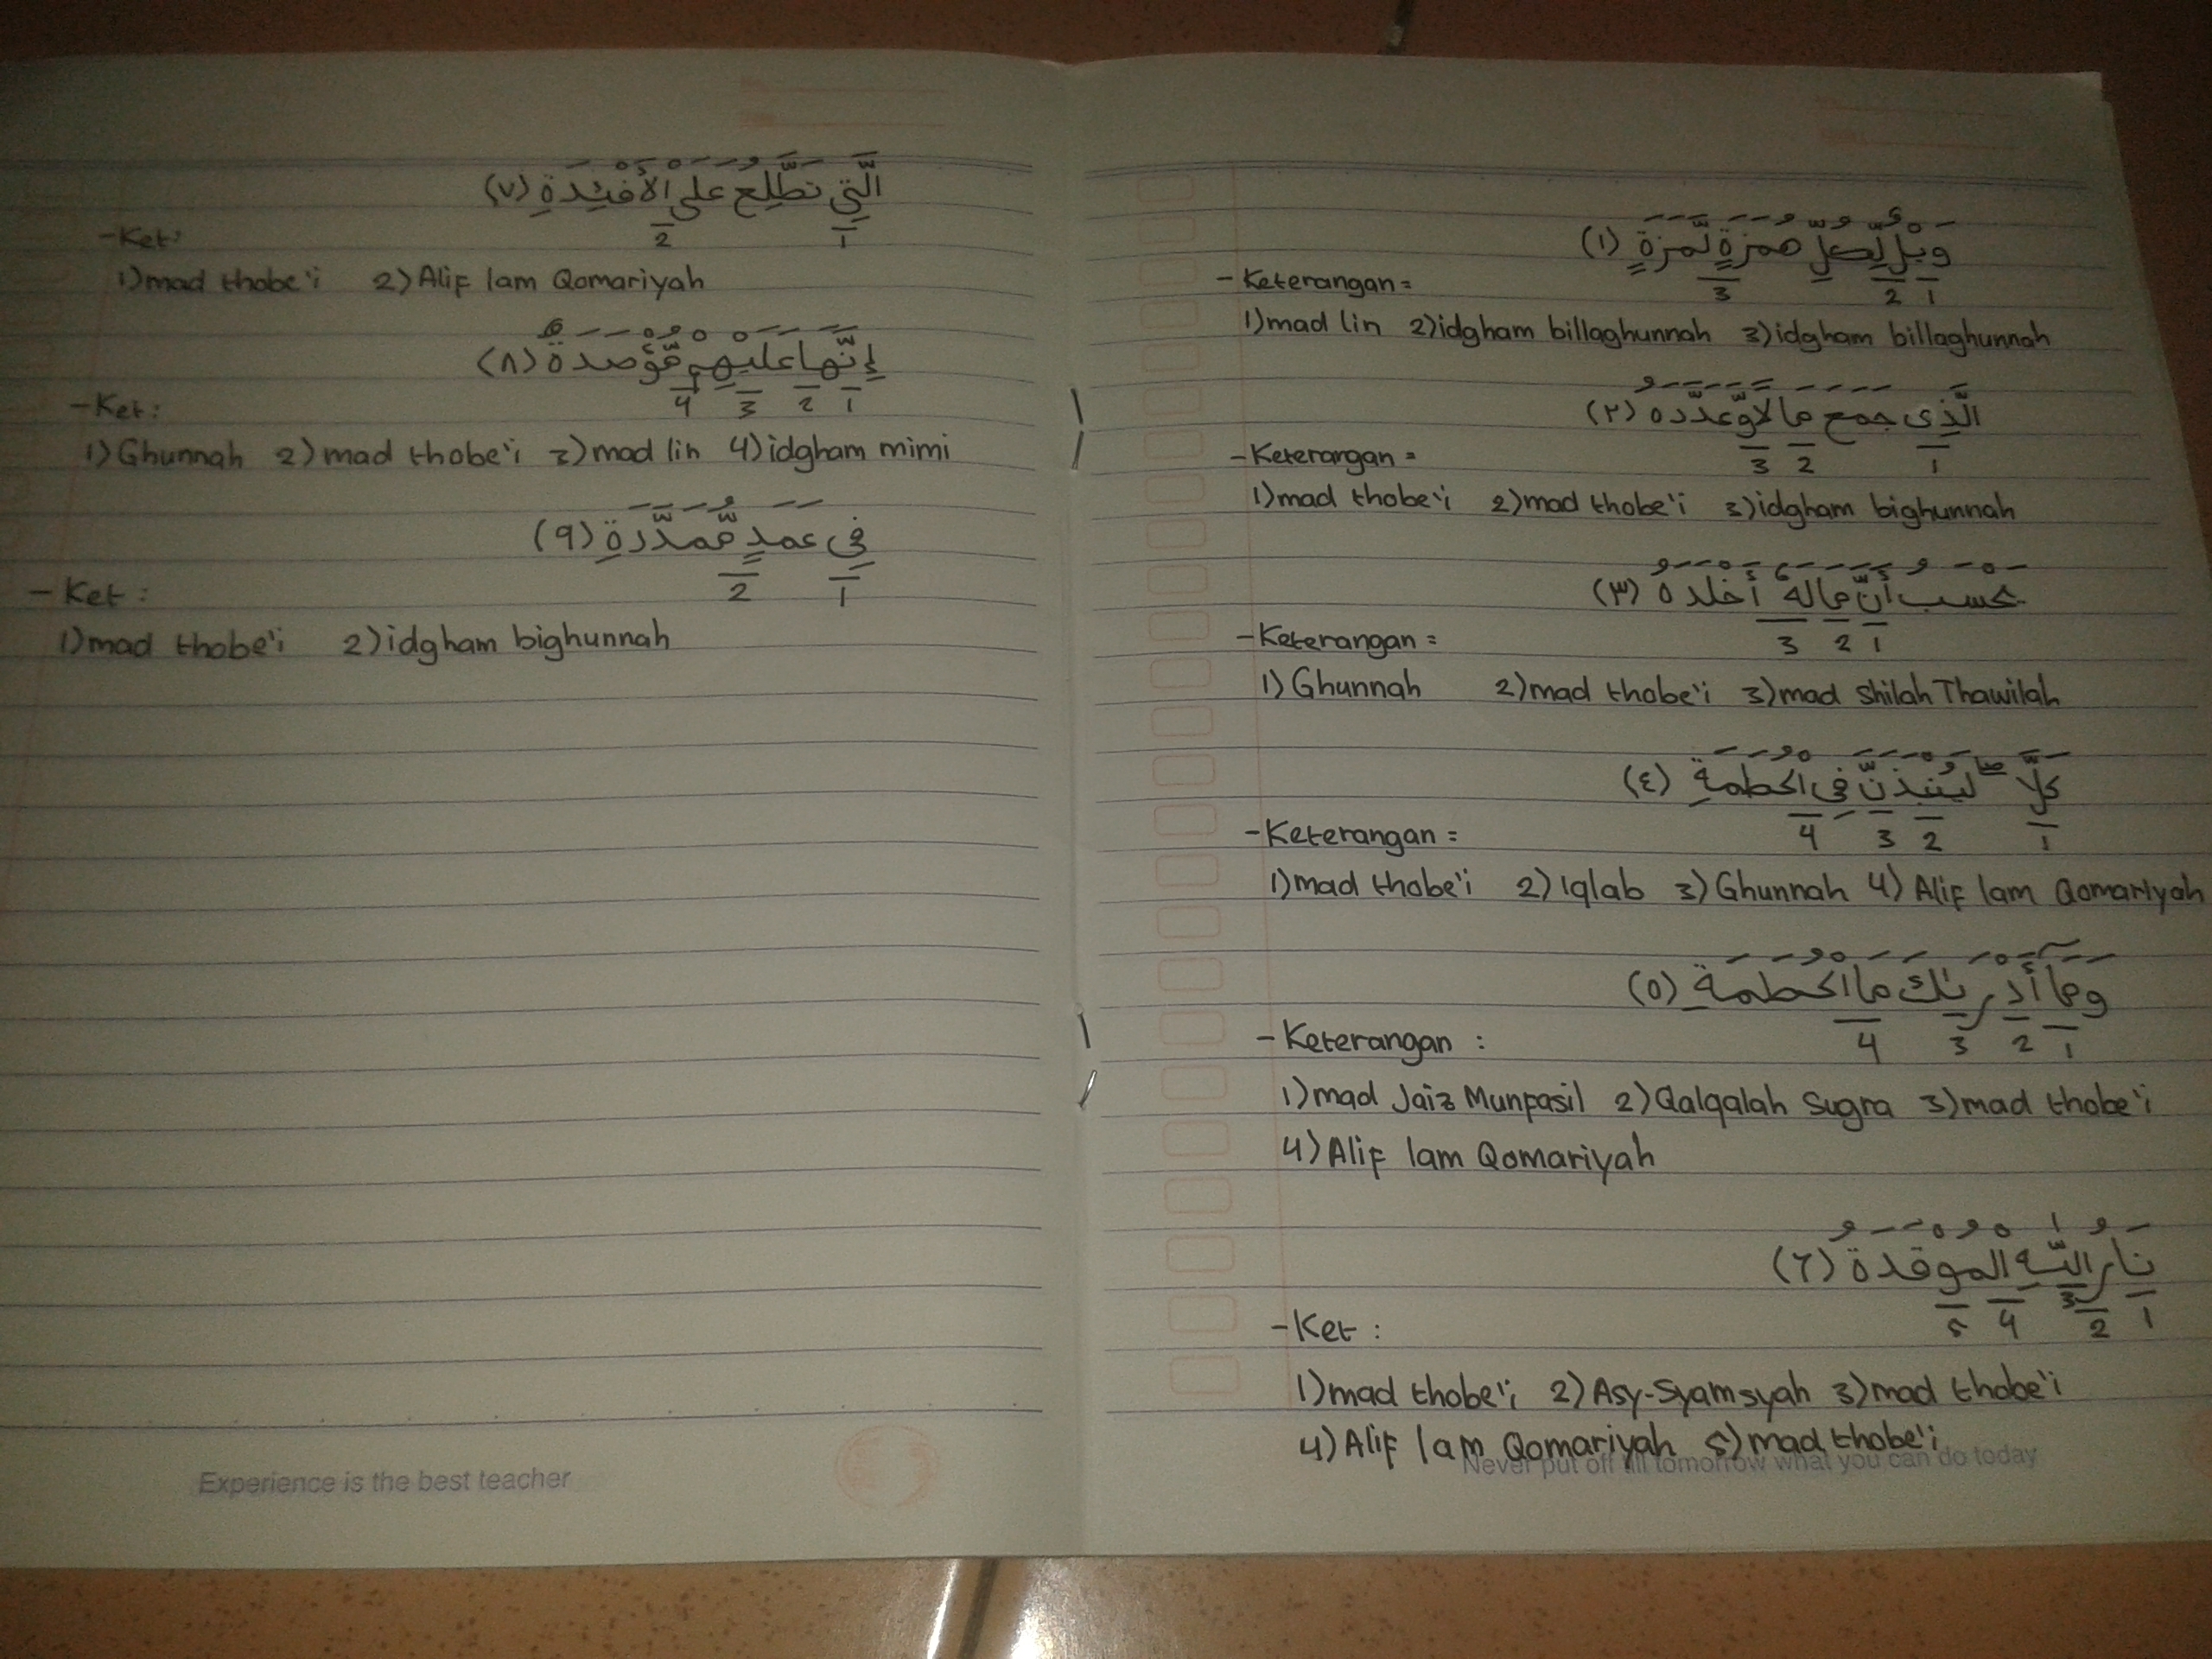 وَيْلٌ لِّكُلِّ هُمَزَةٍ لُّمَزَةٍ (١)
1 2 3
- Keterangan =
1) mad lin 2) idgham billaghunnah 3) idgham billaghunnah
الَّذِى جَمَعَ مَا لًا وَّعَدَّدَهُ (٢)
1 2 3
- Keterangan =
1) mad thobe'i 2) mad thobe'i 3) idgham bighunnah
يَحْسَبُ أَنَّ مَالَهُ أَخْلَدَهُ (٣)
1 2 3
- Keterangan =
1) Ghunnah 2) mad thobe'i 3) mad Shilah Thawilah
كَلَّا ۖ لَيُنْبَذَنَّ فِى الْحُطَمَةِ (٤)
1 2 3 4
- Keterangan =
1) mad thobe'i 2) Iqlab 3) Ghunnah 4) Alif lam Qomariyah
وَمَآ أَدْرَىٰكَ مَا الْحُطَمَةِ (٥)
1 2 3 4
- Keterangan :
1) mad Jaiz Munfasil 2) Qalqalah Sugra 3) mad thobe'i
4) Alif lam Qomariyah
نَارُ اللّٰهِ الْمُوْقَدَةُ (٦)
1 2 3 4 5
- Ket :
1) mad thobe'i 2) Asy-Syamsyah 3) mad thobe'i
4) Alif lam Qomariyah 5) mad thobe'i
Never put off till tomorrow what you can do today
الَّتِي تَطَّلِعُ عَلَى الْأَفْئِدَةِ (٧)
1 2
- Ket:
1) mad thobe'i 2) Alif lam Qomariyah
إِنَّهَا عَلَيْهِمْ مُّؤْصَدَةٌ (٨)
1 2 3 4
- Ket :
1) Ghunnah 2) mad thobe'i 3) mad lin 4) idgham mimi
فِي عَمَدٍ مُّمَدَّدَةِ (٩)
1 2
- Ket :
1) mad thobe'i 2) idgham bighunnah
Experience is the best teacher